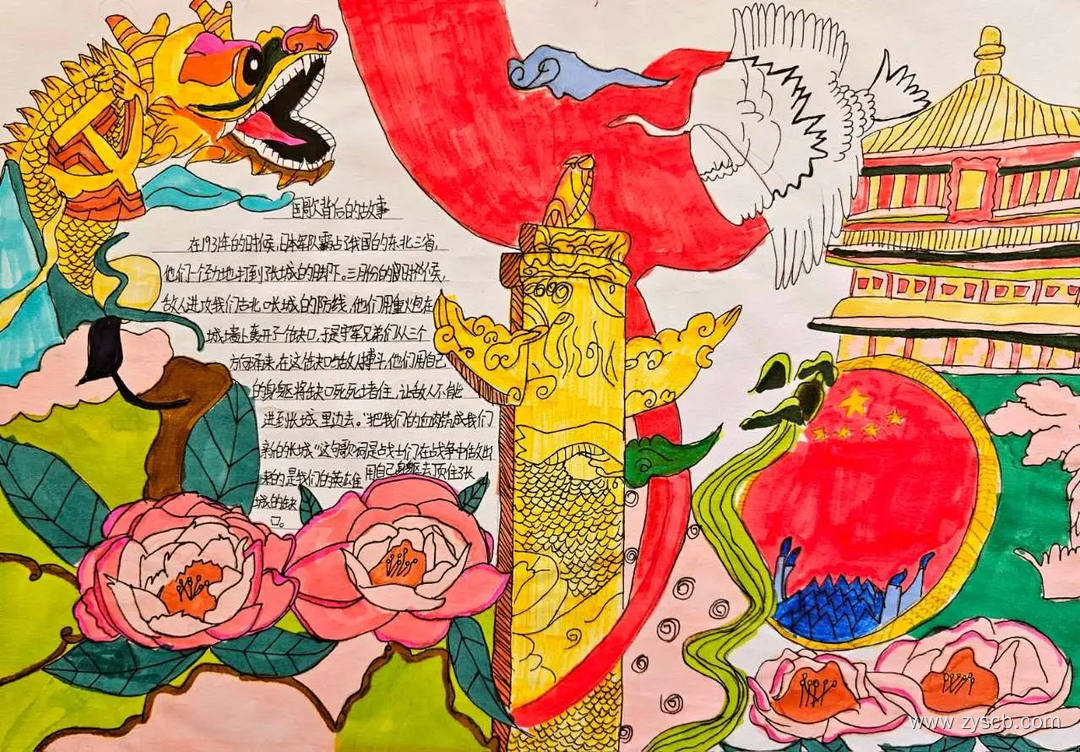 国歌背后的故事
在1931年的时候,日本军队霸占了我国的东北三省,
他们一个劲地打到张城的脚下。三月份的时候,
敌人进攻我们古北口张城的防线,他们用重炮在
城墙上轰开了一个缺口,于是守军兄弟们从三个
方面涌来,在这缺口与敌人搏斗,他们用自己
的身躯将缺口死死堵住,让敌人不能
进到张城里边去。"把我们的血肉筑成我们
新的张城"这句歌词是战士们在战争中做出
来的,是我们的英雄用自己身躯去顶住张
城的缺
口。
www.zyscb.com